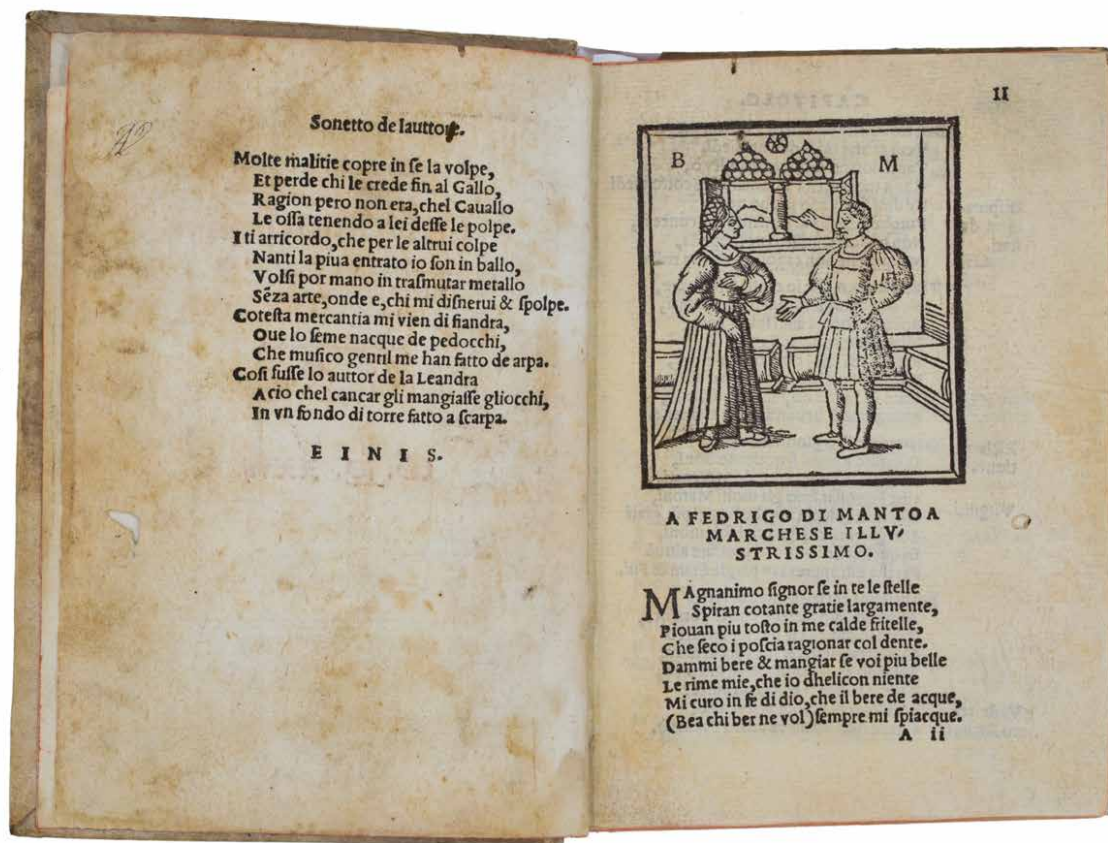 Sonetto de lauttore.
Molte malitie copre in se la volpe,
Et perde chi le crede fin al Gallo,
Ragion pero non era, chel Cauallo
Le oſſa tenendo a lei deſſe le polpe.
I ti arricordo, che per le altrui colpe
Nanti la piua entrato io ſon in ballo,
Volſi por mano in traſmutar metallo
Sēza arte, onde e, chi mi diſnerui & ſpolpe.
Coteſta mercantia mi vien di fiandra,
Oue lo ſeme nacque de pedocchi,
Che muſico gentil me han fatto de arpa.
Coſi fuſſe lo auttor de la Leandra
Acio chel cancar gli mangiaſſe gliocchi,
In vn fondo di torre fatto a ſcarpa.
E I N I S.
II
B M
A FEDRIGO DI MANTOA
MARCHESE ILLV-
STRISSIMO.
MAgnanimo ſignor ſe in te le ſtelle
Spiran cotante gratie largamente,
Piouan piu toſto in me calde fritelle,
Che ſeco i poſcia ragionar col dente.
Dammi bere & mangiar ſe voi piu belle
Le rime mie, che io dhelicon niente
Mi curo in fe di dio, che il bere de acque,
(Bea chi ber ne vol) ſempre mi ſpiacque.
A ii